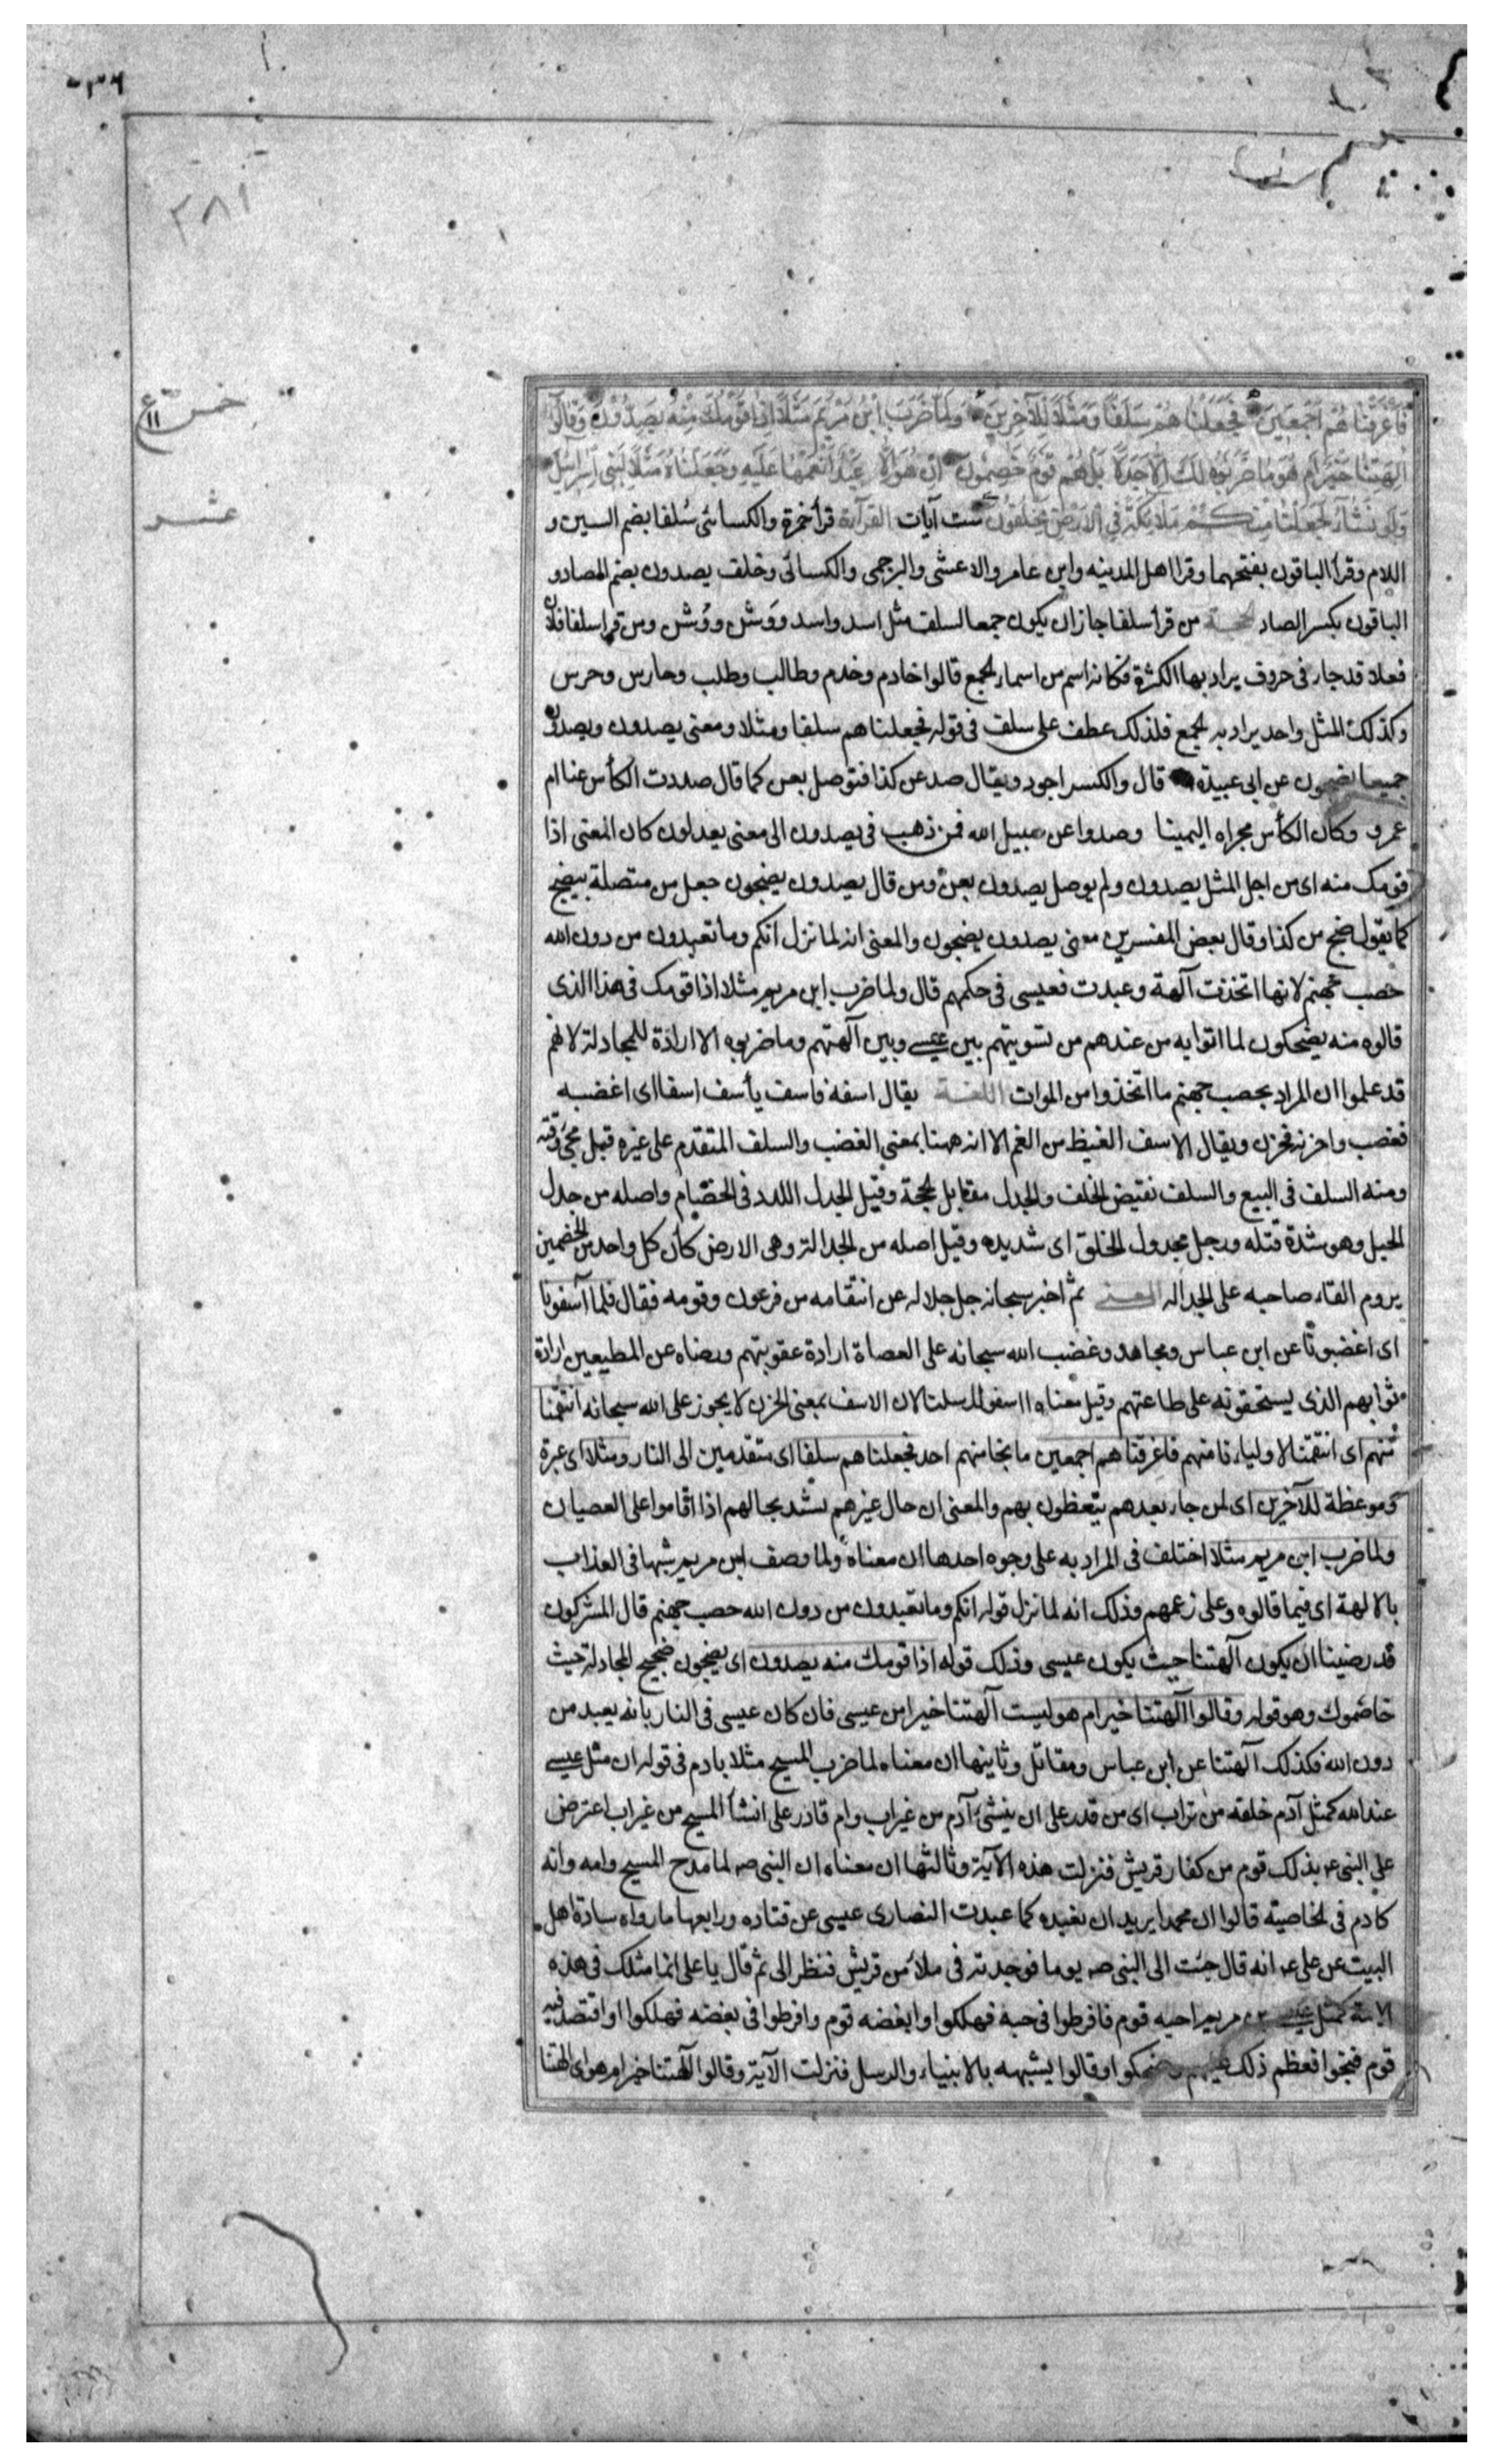 ٠٣٦
٣٨١
خمس ع ١١
عشر
فَأَغْرَقْنَاهُمْ أَجْمَعِينَ فَجَعَلْنَاهُمْ سَلَفًا وَمَثَلًا لِلْآخِرِينَ وَلَمَّا ضُرِبَ ابْنُ مَرْيَمَ مَثَلًا إِذَا قَوْمُكَ مِنْهُ يَصِدُّونَ وَقَالُوا
آلِهَتُنَا خَيْرٌ أَمْ هُوَ مَا ضَرَبُوهُ لَكَ إِلَّا جَدَلًا بَلْ هُمْ قَوْمٌ خَصِمُونَ إِنْ هُوَ إِلَّا عَبْدٌ أَنْعَمْنَا عَلَيْهِ وَجَعَلْنَاهُ مَثَلًا لِبَنِي إِسْرَائِيلَ
وَلَوْ نَشَاءُ لَجَعَلْنَا مِنْكُمْ مَلَائِكَةً فِي الْأَرْضِ يَخْلُفُونَ ست آيات القراءة قرأ حمزة والكسائى سُلفا بضم السين و
اللام وقرأ الباقون بفتحهما وقرا اهل المدينه وابن عامر والاعشى والبرجمى والكسائى وخلف يصدون بضم الصاد و
الباقون بكسر الصاد الحجة من قرأ سلفا جاز ان يكون جمعا لسلف مثل اسد واسد ووَثن ووُثن ومن قرا سلفا فلان
فعلا قد جاء فى حروف يراد بها الكثرة فكانه اسم من اسماء الجمع قالوا خادم وخدم وطالب وطلب وحارس وحرس
وكذلك المثل واحد يراد به الجمع فلذلك عطف على سلف فى قوله فجعلناهم سلفا ومثلا ومعنى يصدون ويصدون
جميعا يضجون عن ابى عبيدة قال والكسر اجود ويقال صد عن كذا فتوصل بعن كما قال صددت الكأس عنا ام
عمرو وكان الكأس مجراه اليمينا وصدوا عن سبيل الله فمن ذهب فى يصدون الى معنى يعدلون كان المعنى اذا
قومك منه اى من اجل المثل يصدون ولم يوصل يصدون بعن ومن قال يصدون يضجون جعل من متصلة بيضج
كما يقول ضج من كذا وقال بعض المفسرين معنى يصدون يضجون والمعنى انه لما نزل انكم وما تعبدون من دون الله
حصب جهنم لانها اتخذت آلهة وعبدت فعيسى فى حكمهم قال ولما ضرب ابن مريم مثلا اذا قومك فى هذا الذى
قالوه منه يضحكون لما اتوا به من عندهم من تسويتهم بين عيسى وبين آلهتهم وما ضربوه الا ارادة للمجادلة لانهم
قد علموا ان المراد بحصب جهنم ما اتخذوا من الموات اللغة يقال اسفه فاسف يأسف اسفا اى اغضبه
فغضب واحزنه فحزن ويقال الاسف الغيظ من الغم الا انه ههنا بمعنى الغضب والسلف المتقدم على غيره قبل مجئ وقته
ومنه السلف فى البيع والسلف نقيض الخلف والجدل مقابل الحجة وقيل الجدل اللدد فى الخصام واصله من جدل
الحبل وهو شدة فتله ورجل مجدول الخلق اى شديده وقيل اصله من الجدالة وهى الارض كأن كل واحد من الخصمين
يروم القاء صاحبه على الجداله المعنى ثم اخبر سبحانه جل جلاله عن انتقامه من فرعون وقومه فقال فلما آسفونا
اى اغضبونا عن ابن عباس ومجاهد وغضب الله سبحانه على العصاة ارادة عقوبتهم ورضاه عن المطيعين ارادة
ثوابهم الذى يستحقونه على طاعتهم وقيل معناه اسفوا رسلنا لان الاسف بمعنى الحزن لا يجوز على الله سبحانه انتقمنا
منهم اى انتقمنا لاوليائنا منهم فاغرقناهم اجمعين ما نجا منهم احد فجعلناهم سلفا اى متقدمين الى النار ومثلا اى عبرة
وموعظة للآخرين اى لمن جاء بعدهم يتعظون بهم والمعنى ان حال غيرهم يشبه بحالهم اذا اقاموا على العصيان
ولما ضرب ابن مريم مثلا اختلف فى المراد به على وجوه احدها ان معناه ولما وصف ابن مريم شبها فى العذاب
بالالهة اى فيما قالوه وعلى زعمهم وذلك انه لما نزل قوله انكم وما تعبدون من دون الله حصب جهنم قال المشركون
قد رضينا ان يكون آلهتنا حيث يكون عيسى وذلك قوله اذا قومك منه يصدون اى يضجون ضجيج المجادلة حيث
خاصموك وهو قوله وقالوا آلهتنا خير ام هو ليست آلهتنا خيرا من عيسى فان كان عيسى فى النار بانه يعبد من
دون الله فكذلك آلهتنا عن ابن عباس ومقاتل وثانيها ان معناه لما ضرب المسيح مثلا بادم فى قوله ان مثل عيسى
عند الله كمثل آدم خلقه من تراب اى من قدر على ان ينشئ آدم من غير اب وام قادر على انشأ المسيح من غير اب اعترض
على النبى ع بذلك قوم من كفار قريش فنزلت هذه الآية وثالثها ان معناه ان النبى ص لما مدح المسيح وامه وانه
كادم فى الخاصية قالوا ان محمدا يريد ان نعبده كما عبدت النصارى عيسى عن قتاده ورابعها ما رواه سادة اهل
البيت عن على ع انه قال جئت الى النبى ص يوما فوجدته فى ملأ من قريش فنظر الى ثم قال يا على انما مثلك فى هذه
الامة كمثل عيسى بن مريم احبه قوم فافرطوا فى حبه فهلكوا وابغضه قوم وافرطوا فى بغضه فهلكوا واقتصد فيه
قوم فنجوا فعظم ذلك عليهم وضحكوا وقالوا يشبهه بالانبياء والرسل فنزلت الآية وقالوا آلهتنا خير ام هو اى الهتنا